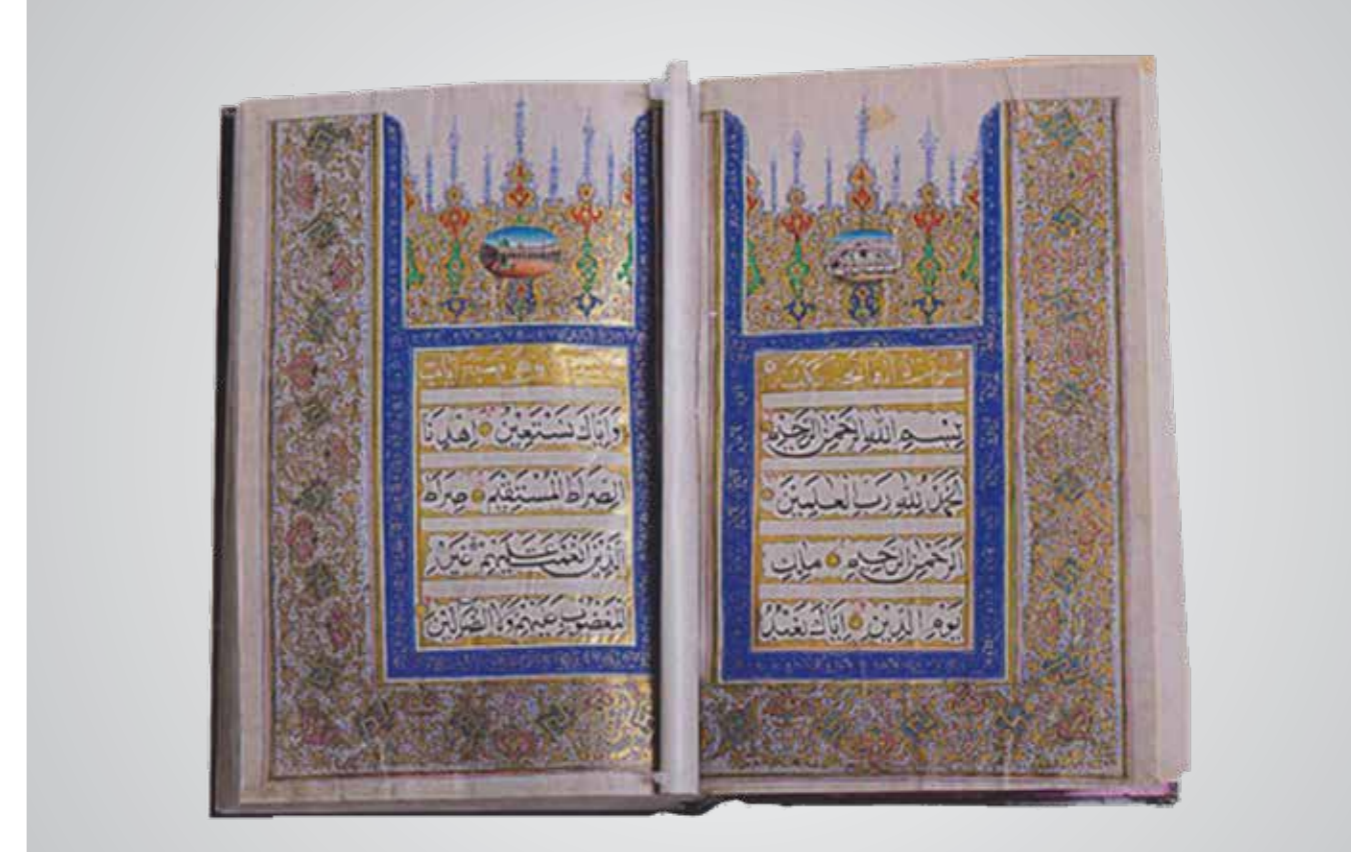 بِسْمِ اللهِ الرَّحْمٰنِ الرَّحِيْمِ
اَلْحَمْدُ لِلّٰهِ رَبِّ الْعٰلَمِيْنَ
الرَّحْمٰنِ الرَّحِيْمِ مٰلِكِ
يَوْمِ الدِّيْنِ اِيَّاكَ نَعْبُدُ
وَاِيَّاكَ نَسْتَعِيْنُ اِهْدِنَا
الصِّرَاطَ الْمُسْتَقِيْمَ صِرَاطَ
الَّذِيْنَ اَنْعَمْتَ عَلَيْهِمْ غَيْرِ
الْمَغْضُوْبِ عَلَيْهِمْ وَلَا الضَّالِّيْنَ